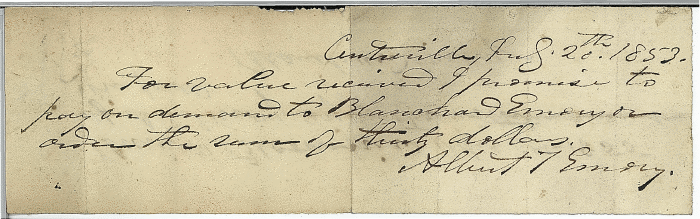 Centreville, Aug. 2th. 1853.
For value received I promise to
pay on demand to Blanchard Emery or
order the sum of thirty dollars.
Albert T Emery.